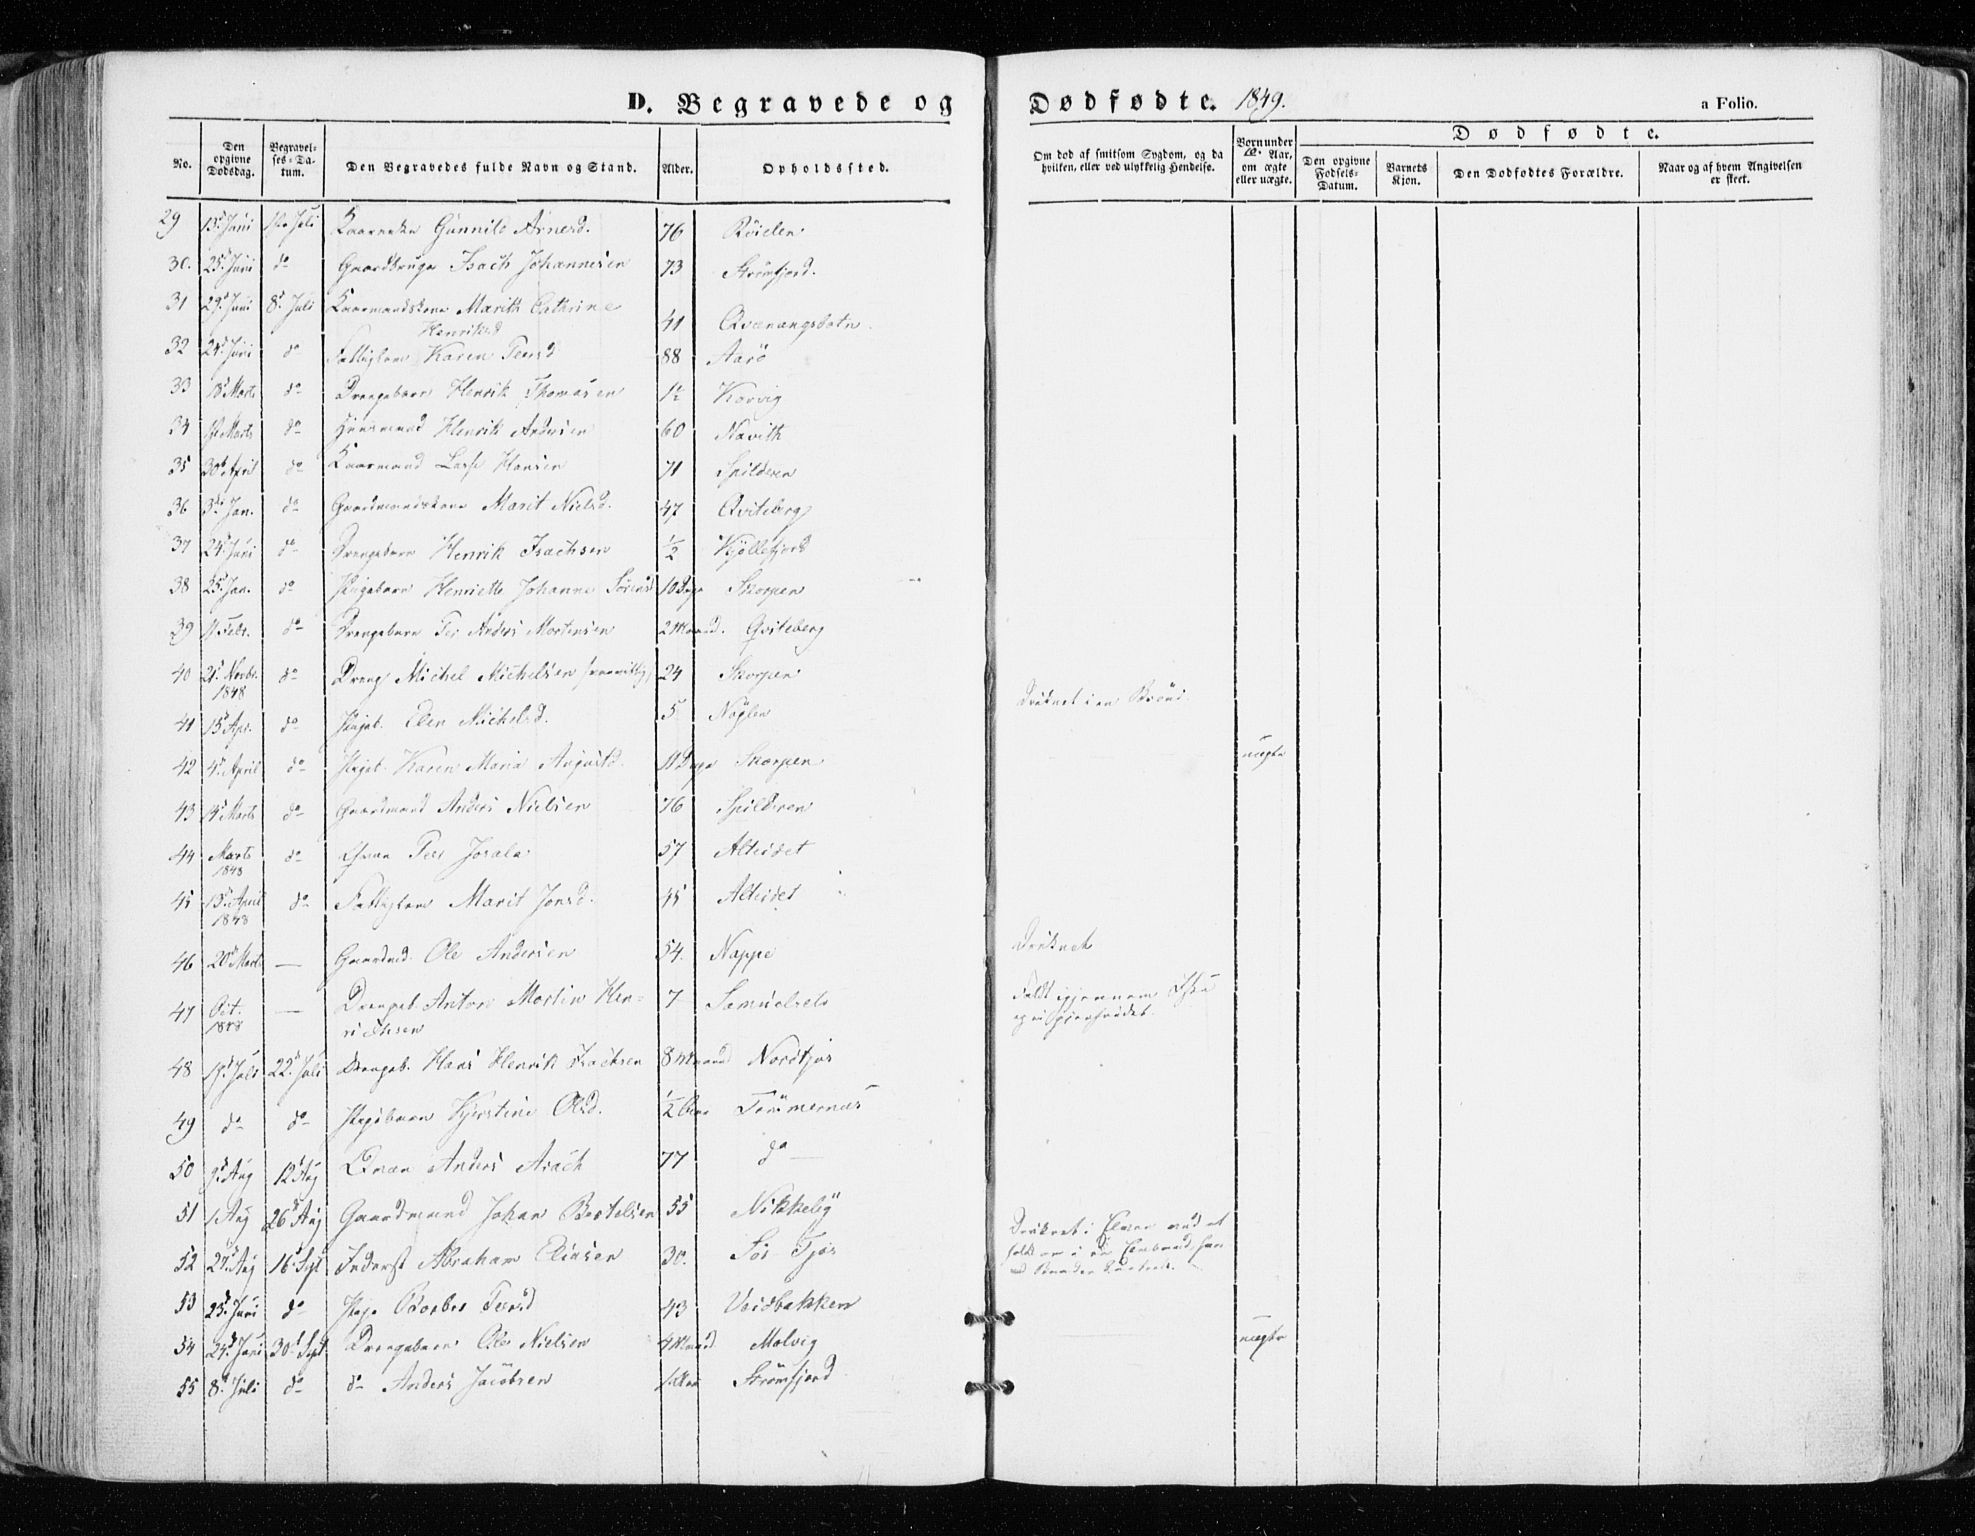 D. Begravede og Dødfødte. 1849. a Folio.
No. Den opgivne Dødsdag. Begravelses-Datum. Den Begravedes fulde Navn og Stand. Alder. Opholdssted. Om død af smitsom Sygdom, og da hvilken, eller ved ulykkelig Hendelse. Børn under 10 Aar, om ægte eller uægte. Dødfødte.
Den opgivne Fødsels-Datum. Barnets Kjøn. Den Dødfødtes Forældre. Naar og af hvem Angivelsen er skeet.
29 13d Juni Juli Gunnild Arnesd. 76 Röielen
30. 25d Juni do Isach Johannesen 73 Strömfjord.
31 29d Juni 8d Juli Kaarmandskone Marith Cathrine
Henriksd 41 Qvænangsbotn.
32 24d Juni do Fattiglem Karen Peersd 88 Aarö
33 18d Marts do Drengebarn Henrik Thomasen 1½ Korvig
34 Marts do Huusmand Henrik Andersen 60 Navith
35 30te April do Kaarmand Lasse Hansen 71 Spilderen
36 3die Jan. do Gaardmandskone Marit Nielsd. 47 Qviteberg
37 24d Juni do Drengebarn Henrik Isachsen ½ Kjöllefjord
38 25d Jan. do Pigebarn Henriette Johanne Sörensd 10 Dage Skorpen
39 11 Febr. do Drengebarn Per Anders Mortensen 2 Maaned. Qviteberg
40 21d Novbr. 1848 do Dreng Michel Michelsen (vanvittig) 24 Skorpen
41 15d Apr. do Pigeb. Elen Michelsd. 5 Nöglen Druknet i en Brönd.
42 4d April do Pigeb. Karen Maria Augustd. 11 Dage Skorpen uægte
43 14d Marts do Gaardmand Anders Nielsen 76 Spilderen
44 Marts 1848 do Qvæn Peer Josala 57 Alteidet
45 13d April 1848 do Fattiglem Marit Jonsd. 45 Alteidet
46 20d Marts — Gaardmd. Ole Andersen 54. Nappe Druknet
47 Oct. 1848 — Drengeb. Anton Martin Hen-
richsen 7 Samuelselv Faldt igjennem Isen
og ei gjenfundet.
48 19d Juli 22d Juli Drengeb. Hans Henrik Isachsen 8 Maaned Nordtjos
49 do do Pigebarn Kjerstine Olsd. ½ Tömmernæs
50 9d Aug 12d Aug Qvæn Anders Asach 77 do
51 1 Aug 26d Aug Gaardmand Johan Bertelsen 55 Nikkeby
52 27d Aug 16d Sept Inderst Abraham Eliasen 30. Sör Tjos Druknet i Elven ved at
53 23d Juni do Pige Barbro Peersd 43 Veidbakken
54 24d Juni 30d Sept Drengebarn Ole Nielsen 4 Maaned Molvig uægte
55 8d Juli do do Anders Jacobsen Strömfjord